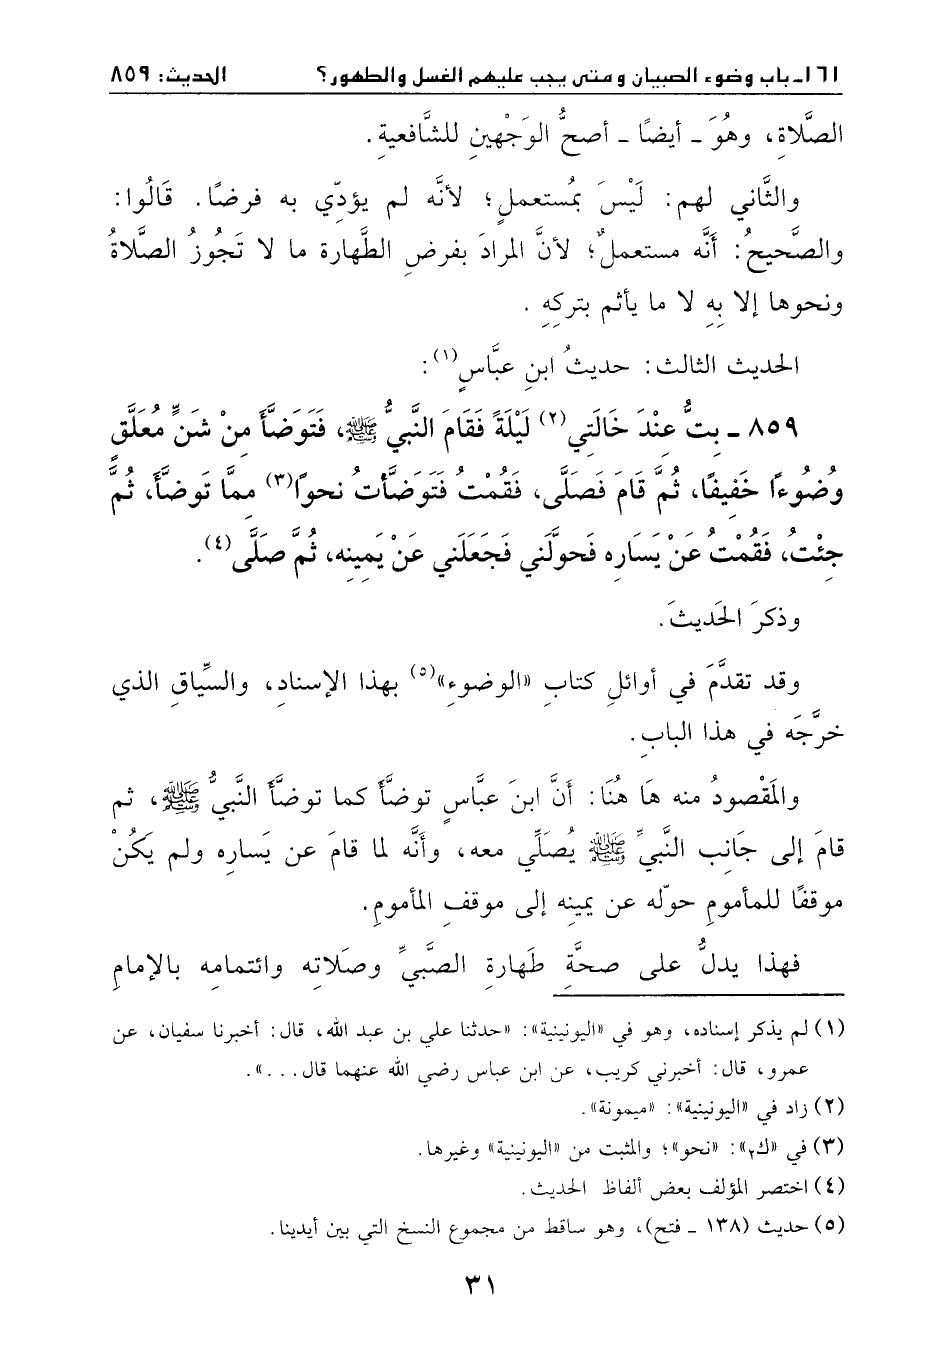 ١٦١ـ باب وضوء الصبيان ومتى يجب عليهم الغسل والطهور؟ الحديث: ٨٥٩
الصَّلاة، وهُوَ ـ أيضًا ـ أصحُّ الوَجْهينِ للشَّافعيةِ.
والثَّاني لهم: لَيْسَ بمُستعملٍ؛ لأنَّه لم يؤدّي به فرضًا. قَالُوا:
والصَّحيحُ: أنَّه مستعملٌ؛ لأنَّ المرادَ بفرضِ الطَّهارة ما لا تَجُوزُ الصَّلاةُ
ونحوها إلا بِهِ لا ما يأثم بتركِهِ.
الحديث الثالث: حديثُ ابنِ عبَّاسٍ(١):
٨٥٩ ـ بِتُّ عِنْدَ خَالَتِي(٢) لَيْلَةً فَقَامَ النَّبيُّ ﷺ، فَتَوَضَّأَ مِنْ شَنٍّ مُعَلَّقٍ
وُضُوءًا خَفيفًا، ثُمَّ قَامَ فَصلَّى، فَقُمْتُ فَتَوَضَّأتُ نحوًا(٣) مِمَّا تَوضَّأَ، ثُمَّ
جِئْتُ، فَقُمْتُ عَنْ يَسَارِه فَحولَّني فَجَعَلَني عَنْ يَمِينِه، ثُمَّ صلَّى(٤).
وذكرَ الحَديثَ.
وقد تقدَّمَ في أوائلِ كتابِ «الوضوءِ»(٥) بهذا الإسنادِ، والسِّياقِ الذي
خرَّجَه في هذا البابِ.
والمَقْصودُ منه هَا هُنَا: أنَّ ابنَ عبَّاسٍ توضَّأَ كما توضَّأَ النَّبيُّ ﷺ، ثم
قامَ إلى جَانِب النَّبيِّ ﷺ يُصَلِّي معه، وأنَّه لما قامَ عن يَساره ولم يَكُنْ
موقفًا للمأمومِ حوّله عن يمينِه إلى موقفِ المأمومِ.
فهذا يدلُّ على صحَّةِ طَهارة الصَّبيِّ وصَلاتِه وائتمامِه بالإمامِ
(١) لم يذكر إسناده، وهو في «اليونينية»: «حدثنا علي بن عبد الله، قال: أخبرنا سفيان، عن
عمرو، قال: أخبرني كريب، عن ابن عباس رضي الله عنهما قال...».
(٢) زاد في «اليونينية»: «ميمونة».
(٣) في «ك٢»: «نحو»؛ والمثبت من «اليونينية» وغيرها.
(٤) اختصر المؤلف بعض ألفاظ الحديث.
(٥) حديث (١٣٨ ـ فتح)، وهو ساقط من مجموع النسخ التي بين أيدينا.
٣١